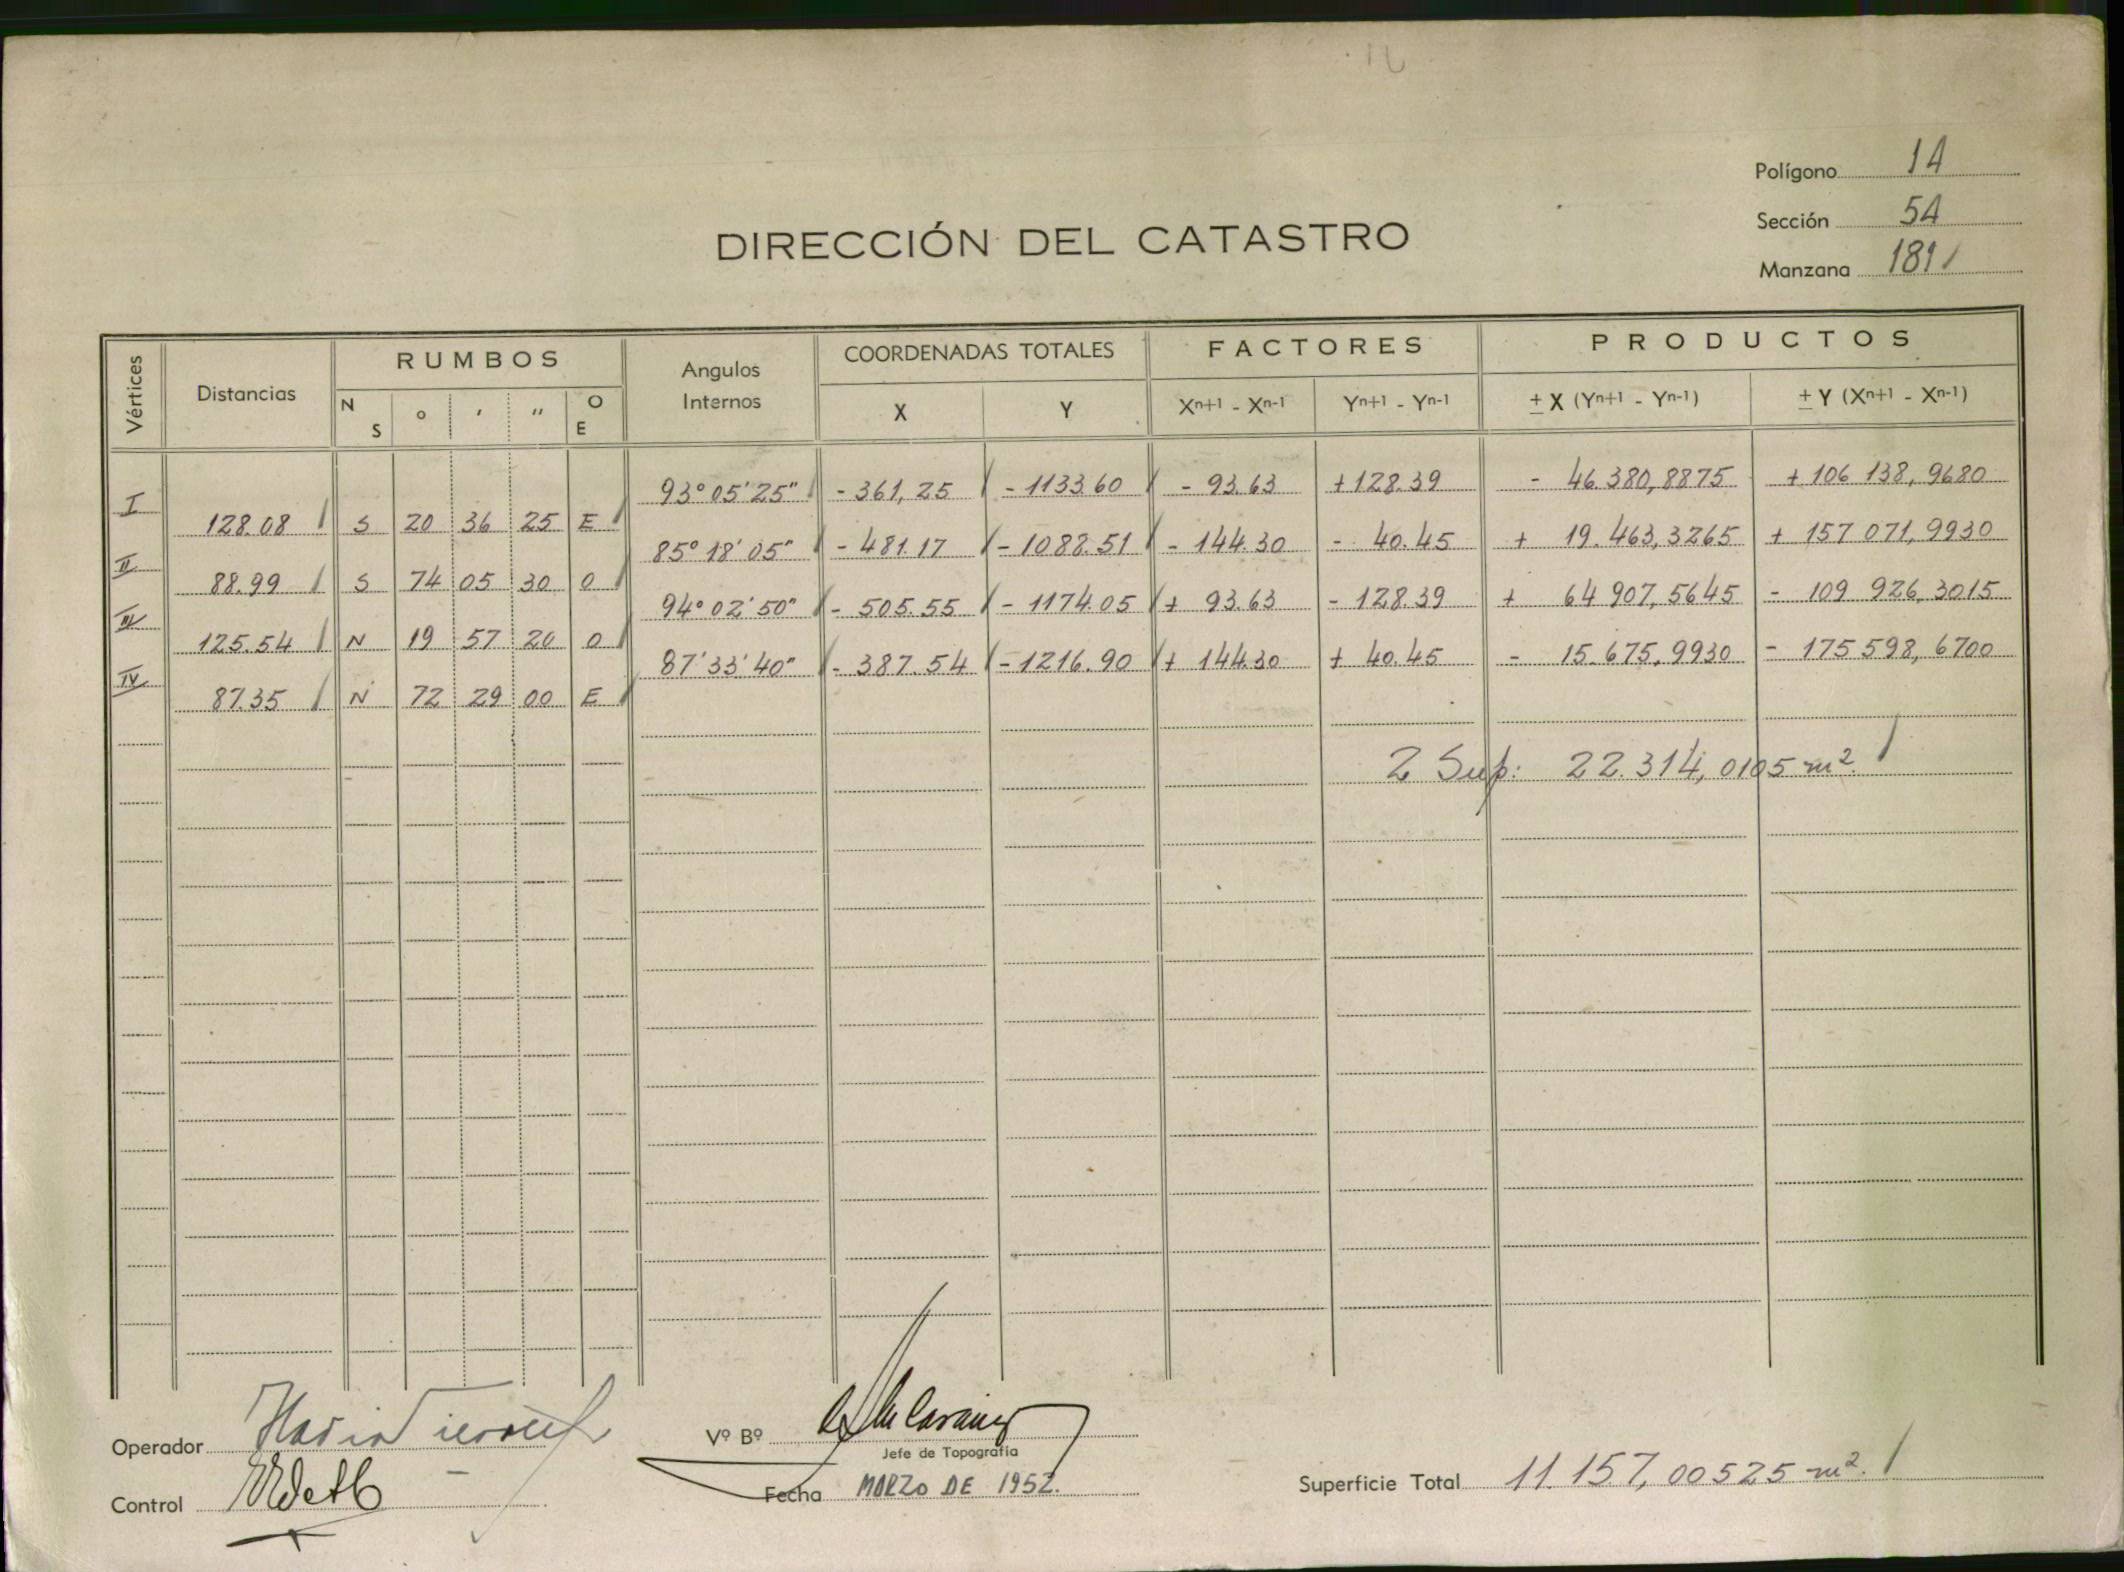 Polígono 14
Sección 54
Manzana 181
DIRECCIÓN DEL CATASTRO
Vértices Distancias RUMBOS Angulos Internos COORDENADAS TOTALES FACTORES PRODUCTOS
N S ° ' " O E X Y Xn+1 - Xn-1 Yn+1 - Yn-1 ± X (Yn+1 - Yn-1) ± Y (Xn+1 - Xn-1)
I 93°05'25" - 361,25 - 1133.60 - 93.63 + 128.39 - 46.380,8875 + 106 138,9680
128.08 S 20 36 25 E
II 85°18'05" - 481.17 - 1088.51 - 144.30 - 40.45 + 19.463,3265 + 157 071,9930
88.99 S 74 05 30 O
III 94°02'50" - 505.55 - 1174.05 + 93.63 - 128.39 + 64 907,5645 - 109 926,3015
125.54 N 19 57 20 O
IV 87°33'40" - 387.54 - 1216.90 + 144.30 + 40.45 - 15.675,9930 - 175 598,6700
87.35 N 72 29 00 E
2 Sup: 22.314,0105 m².
Operador
Vº Bº
Jefe de Topografía
Control
Fecha MARZO DE 1952.
Superficie Total 11.157,00525 m².